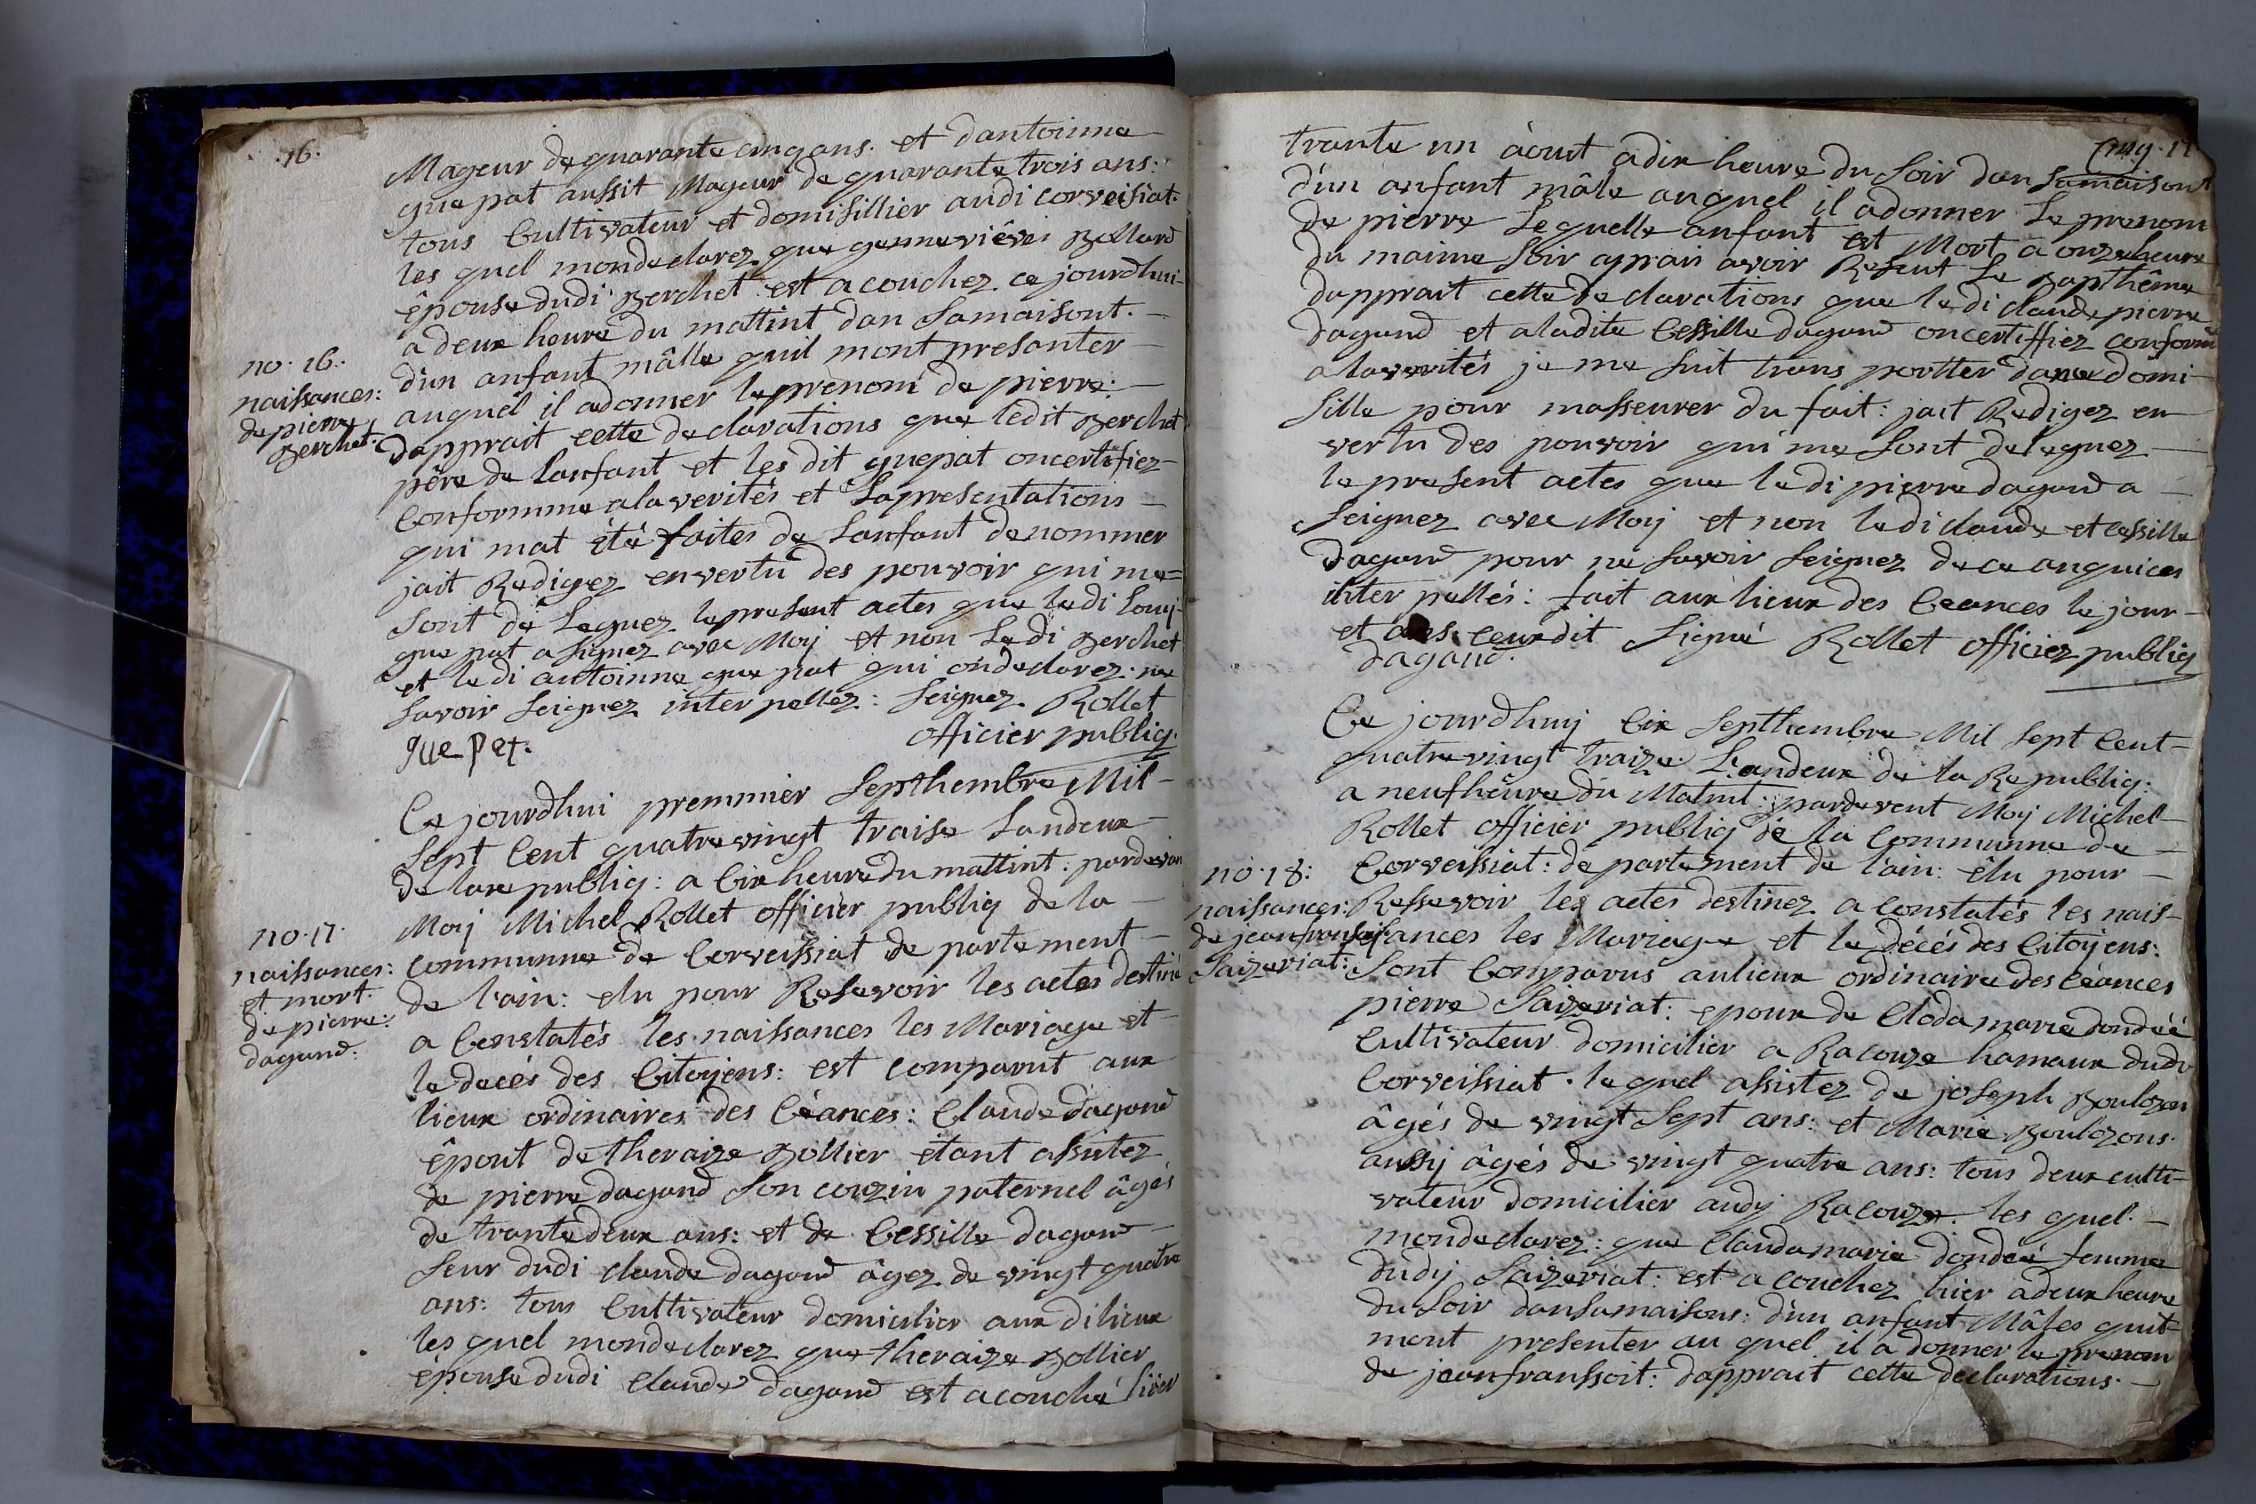 .16.
Mageur de quarante cinq ans. et dantoinne
guepat aussit Mageur de quarante trois ans:
tous Cultivateur et domisillier audi corveissiat.
les quel monde clarez que gennevièves Bollard
êpouse dudi Berchet est a couchez ce jourdhui-
a deux heure du mattint dan samaisont.
no. 16.:
naissances:
de pierre
Berchet.
dun anfant mâlle quil mont presanter
auquel il adonner le prenom de pierre:
dapprait cette declarations que ledit Berchet
père de lanfant et les dit guepat oncertifiez
Conformme alaverités et Lapresentations
qui mat été faites de Lanfant denommer
jait Redigez envertu des pouvoir qui me=
sont dé Leguez lepresent actes que ledi louij
gue pat a signez avec Moij et non Le di Berchet
et le di antoinne gue pat qui ondeclarez. ne
savoir seignez inter pellez: seignez Rollet
gue pet.
officier publiq.
Ce jourdhui premmier Septhembre Mil-
Sept Cent quatre vingt traise Landeux
de lare publiq: a Cix heure du mattint: pardevan
no. 17.
naissances:
et mort.
de pierre:
dagand:
Moij Michel Rollet officier publiq de la
Communne de Corveissiat de partement
de lain: elu pour Resevoir les actes destiné
a Constatés les naissances les Mariage et
le decés des Citoijens: est comparut aux
lieux ordinaires des Céances: Claude dagand
êpout de theraize Bollier etant assistez
de pierre dagand son couzin paternel âgés
de trante deux ans: et de Cessille dagand
seur dudi claude dagand âgez de vingt quatre
ans: tous Cultivateur domicilier aux di lieux
les quel monde clarez que theraize Bollier
épouse dudi Claude dagand est a couché hier
Cinq. 17
trante un àoust adix heure du Soir dan samaisont
dun anfant mâle auquel il adonner Le prenom
de pierre Lequelle anfant est Mort a onze heure
du maime Soir aprais avoir Resut Le Bapthême
dapprait cette de clarations que le di claude pierre
dagand et aladite Cessille dagand oncertiffiez conforme
alaverités je me suit trans portter dance domi-
sille pour masseurer du fait: jait Redigez en
vertu des pouvoir qui me sont deleguez
le present actes que le di pierre dagand a
seignez avec Moij et non le di claude et cessille
dagand pour ne savoir seignez de ce anquices
inter pellés: fait aux lieux des Ceances le jour-
et ans ceux dit Signé Rollet officiez publiq
dagand.
Ce jourdhuij Cix Septhembre Mil Sept Cent-
quatre vingt traize Landeux de la Republiq:
a neuf heure du Matint: pardevent Moij Michel
Rollet officier publiq de la Communne de
no. 18:
naissances:
de jeanfransoit
Saizeriat:
Corveissiat: de partement de lain: êlu pour
Ressevoir les actes destinez a Constatés les nais-
sances les Mariage et le décés des Citoijens:
Sont Comparus aulieux ordinaire des Céances
pierre Saizeriat: epoux de Cloda marie dondéé
Cultivateur domicilier a Racouze hamaux dudi
Corveissiat. le quel assistez de joseph Boulozon
âgés de vingt Sept ans: et Marie Boulozons.
aussij âgés de vingt quatre ans: tous deux culti-
vateur domicilier audij Racouze. les quel.
mondeclarez: que Claudamarie dondéé femme
dudij Saizeriat: est a couchez hier a deux heure
du Soir dansamaisons: dun anfant Mâles quil
mont presenter au quel il a donner le prenom
de jeanfranssoit: dapprait cette declarations.